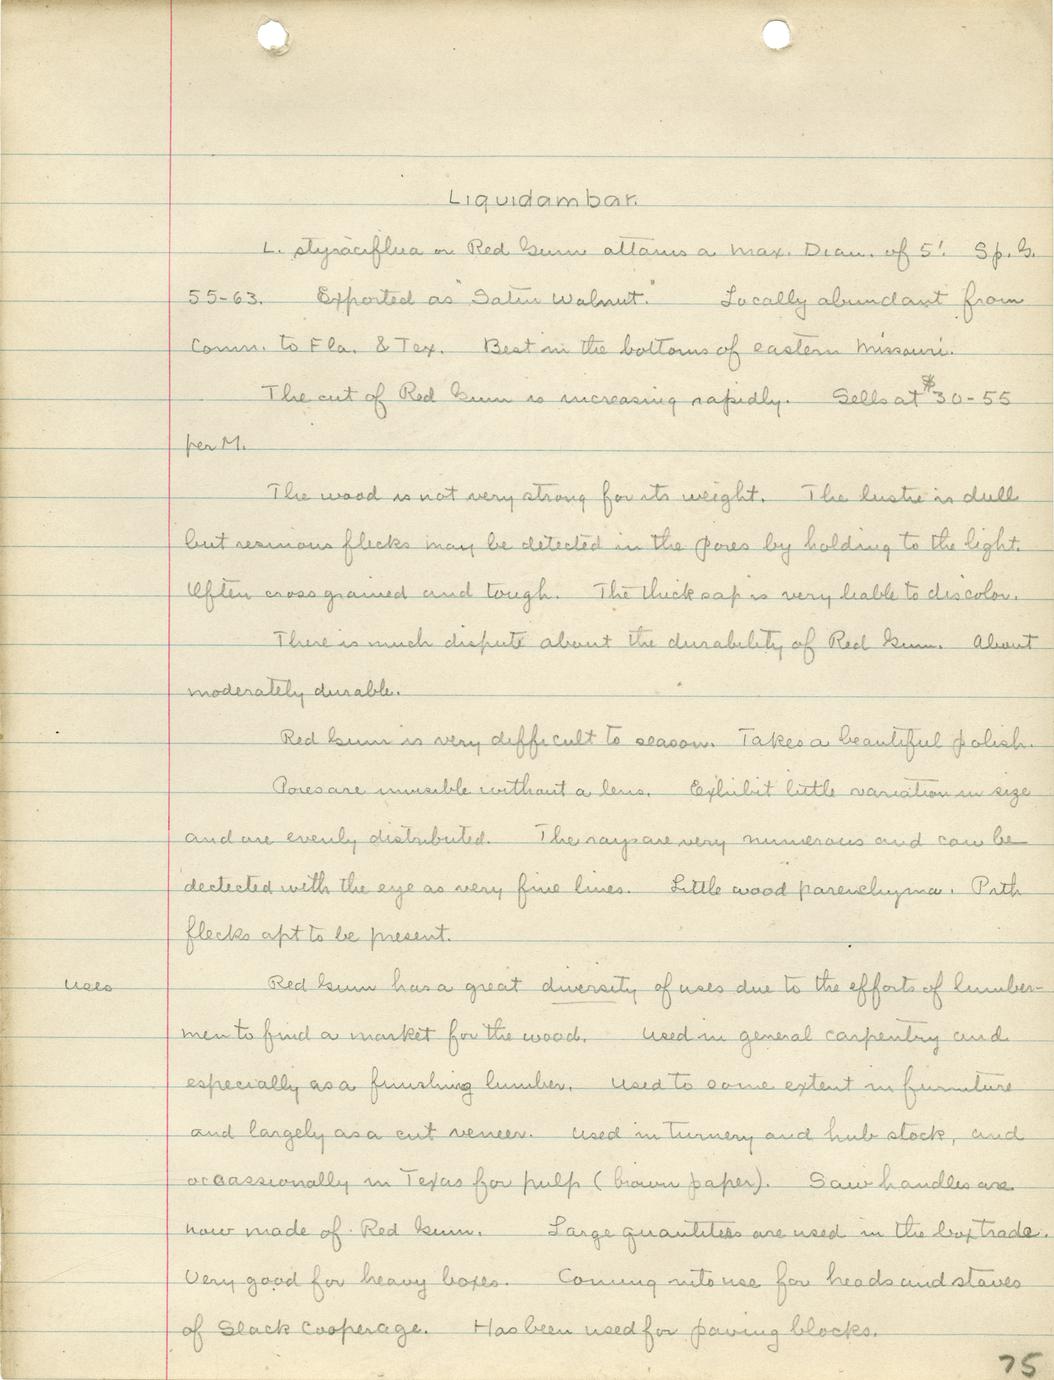 Liquidambar.
L. styraciflua or Red Gum attains a max. Diam. of 5'. Sp. G.
55-63. Exported as "Satin Walnut." Locally abundant from
Conn. to Fla. & Tex. Best in the bottoms of eastern Missouri.
The cut of Red Gum is increasing rapidly. Sells at $30-55
per M.
The wood is not very strong for its weight. The lustre is dull
but resinous flecks may be detected in the pores by holding to the light.
Often cross grained and tough. The thick sap is very liable to discolor.
There is much dispute about the durability of Red Gum. About
moderately durable.
Red Gum is very difficult to season. Takes a beautiful polish.
Pores are invisible without a lens. Exhibit little variation in size
and are evenly distributed. The rays are very numerous and can be
dectected with the eye as very fine lines. Little wood parenchyma. Pith
flecks apt to be present.
Uses Red Gum has a great diversity of uses due to the efforts of lumber-
men to find a market for the wood. Used in general carpentry and
especially as a finishing lumber. Used to some extent in furniture
and largely as a cut veneer. Used in turnery and hub stock, and
ocaassionally in Texas for pulp (brown paper). Saw handles are
now made of Red Gum. Large quantities are used in the box trade.
Very good for heavy boxes. Coming into use for heads and staves
of Slack Cooperage. Has been used for paving blocks.
75